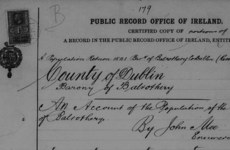 179
B
PUBLIC RECORD OFFICE OF IRELAND.
CERTIFIED COPY OF portions of
A RECORD IN THE PUBLIC RECORD OFFICE OF IRELAND, ENTITL
A Population Return 1821
County of Dublin
Barony of Balrothery
An Account of the Population of the
of Balrothery
By John Mee